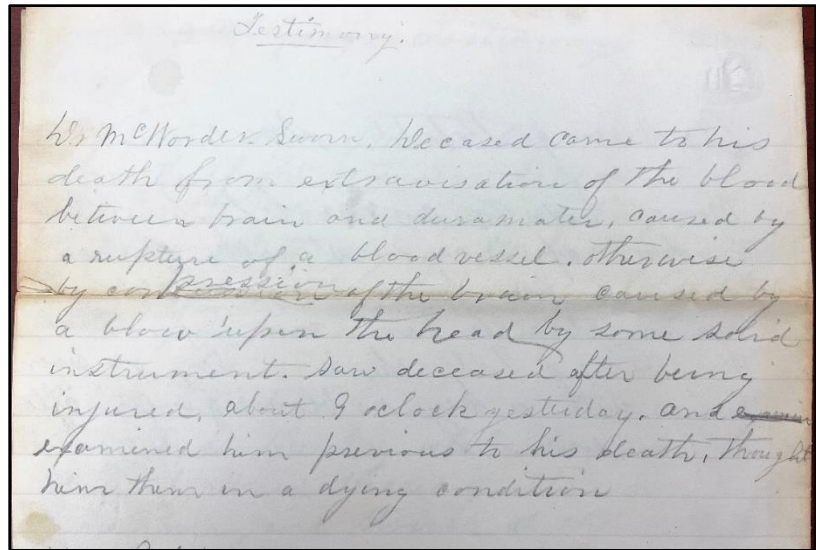 Testimony.
Dr McWorder Sworn, Deceased came to his
death from extravisation of the blood
between brain and duramater, caused by
a rupture of a blood vessel. otherwise
by compression of the brain caused by
a blow upon the head by some solid
instrument. Saw deceased after being
injured, about 9 oclock yesterday. and
examined him previous to his death, thought
him then in a dying condition